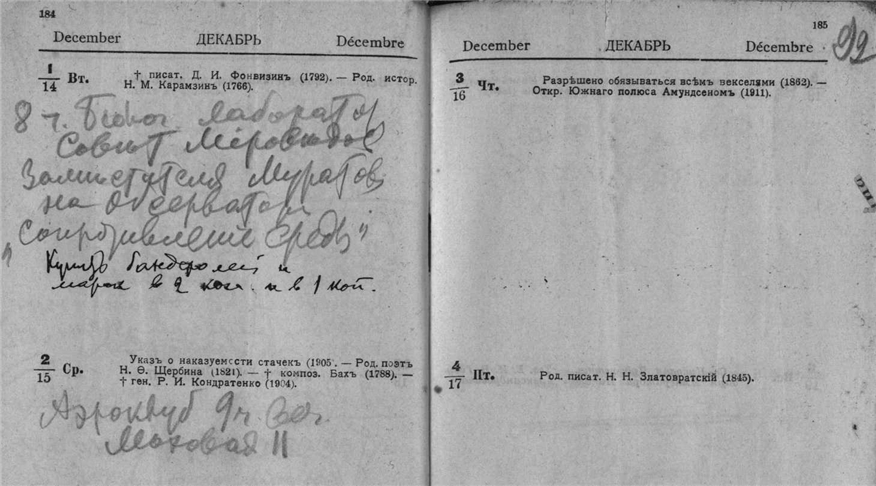 184
December ДЕКАБРЬ Décembre
1/14 Вт. † писат. Д. И. Фонвизинъ (1792). — Род. истор.
Н. М. Карамзинъ (1766).
8 ч.
Совет
Заместителя Муратов
на Обсерватори
„Сопротивление среды"
Купить бандеролей и
марок в 2 коп. и в 1 коп.
2/15 Ср. Указъ о наказуемости стачекъ (1905). — Род. поэтъ
Н. Ѳ. Щербина (1821). — † композ. Бахъ (1788). —
† ген. Р. И. Кондратенко (1904).
Аэроклуб 9 ч. веч.
Моховая 11
185
92
December ДЕКАБРЬ Décembre
3/16 Чт. Разрѣшено обязываться всѣмъ векселями (1862). —
Откр. Южнаго полюса Амундсеномъ (1911).
4/17 Пт. Род. писат. Н. Н. Златовратскій (1845).